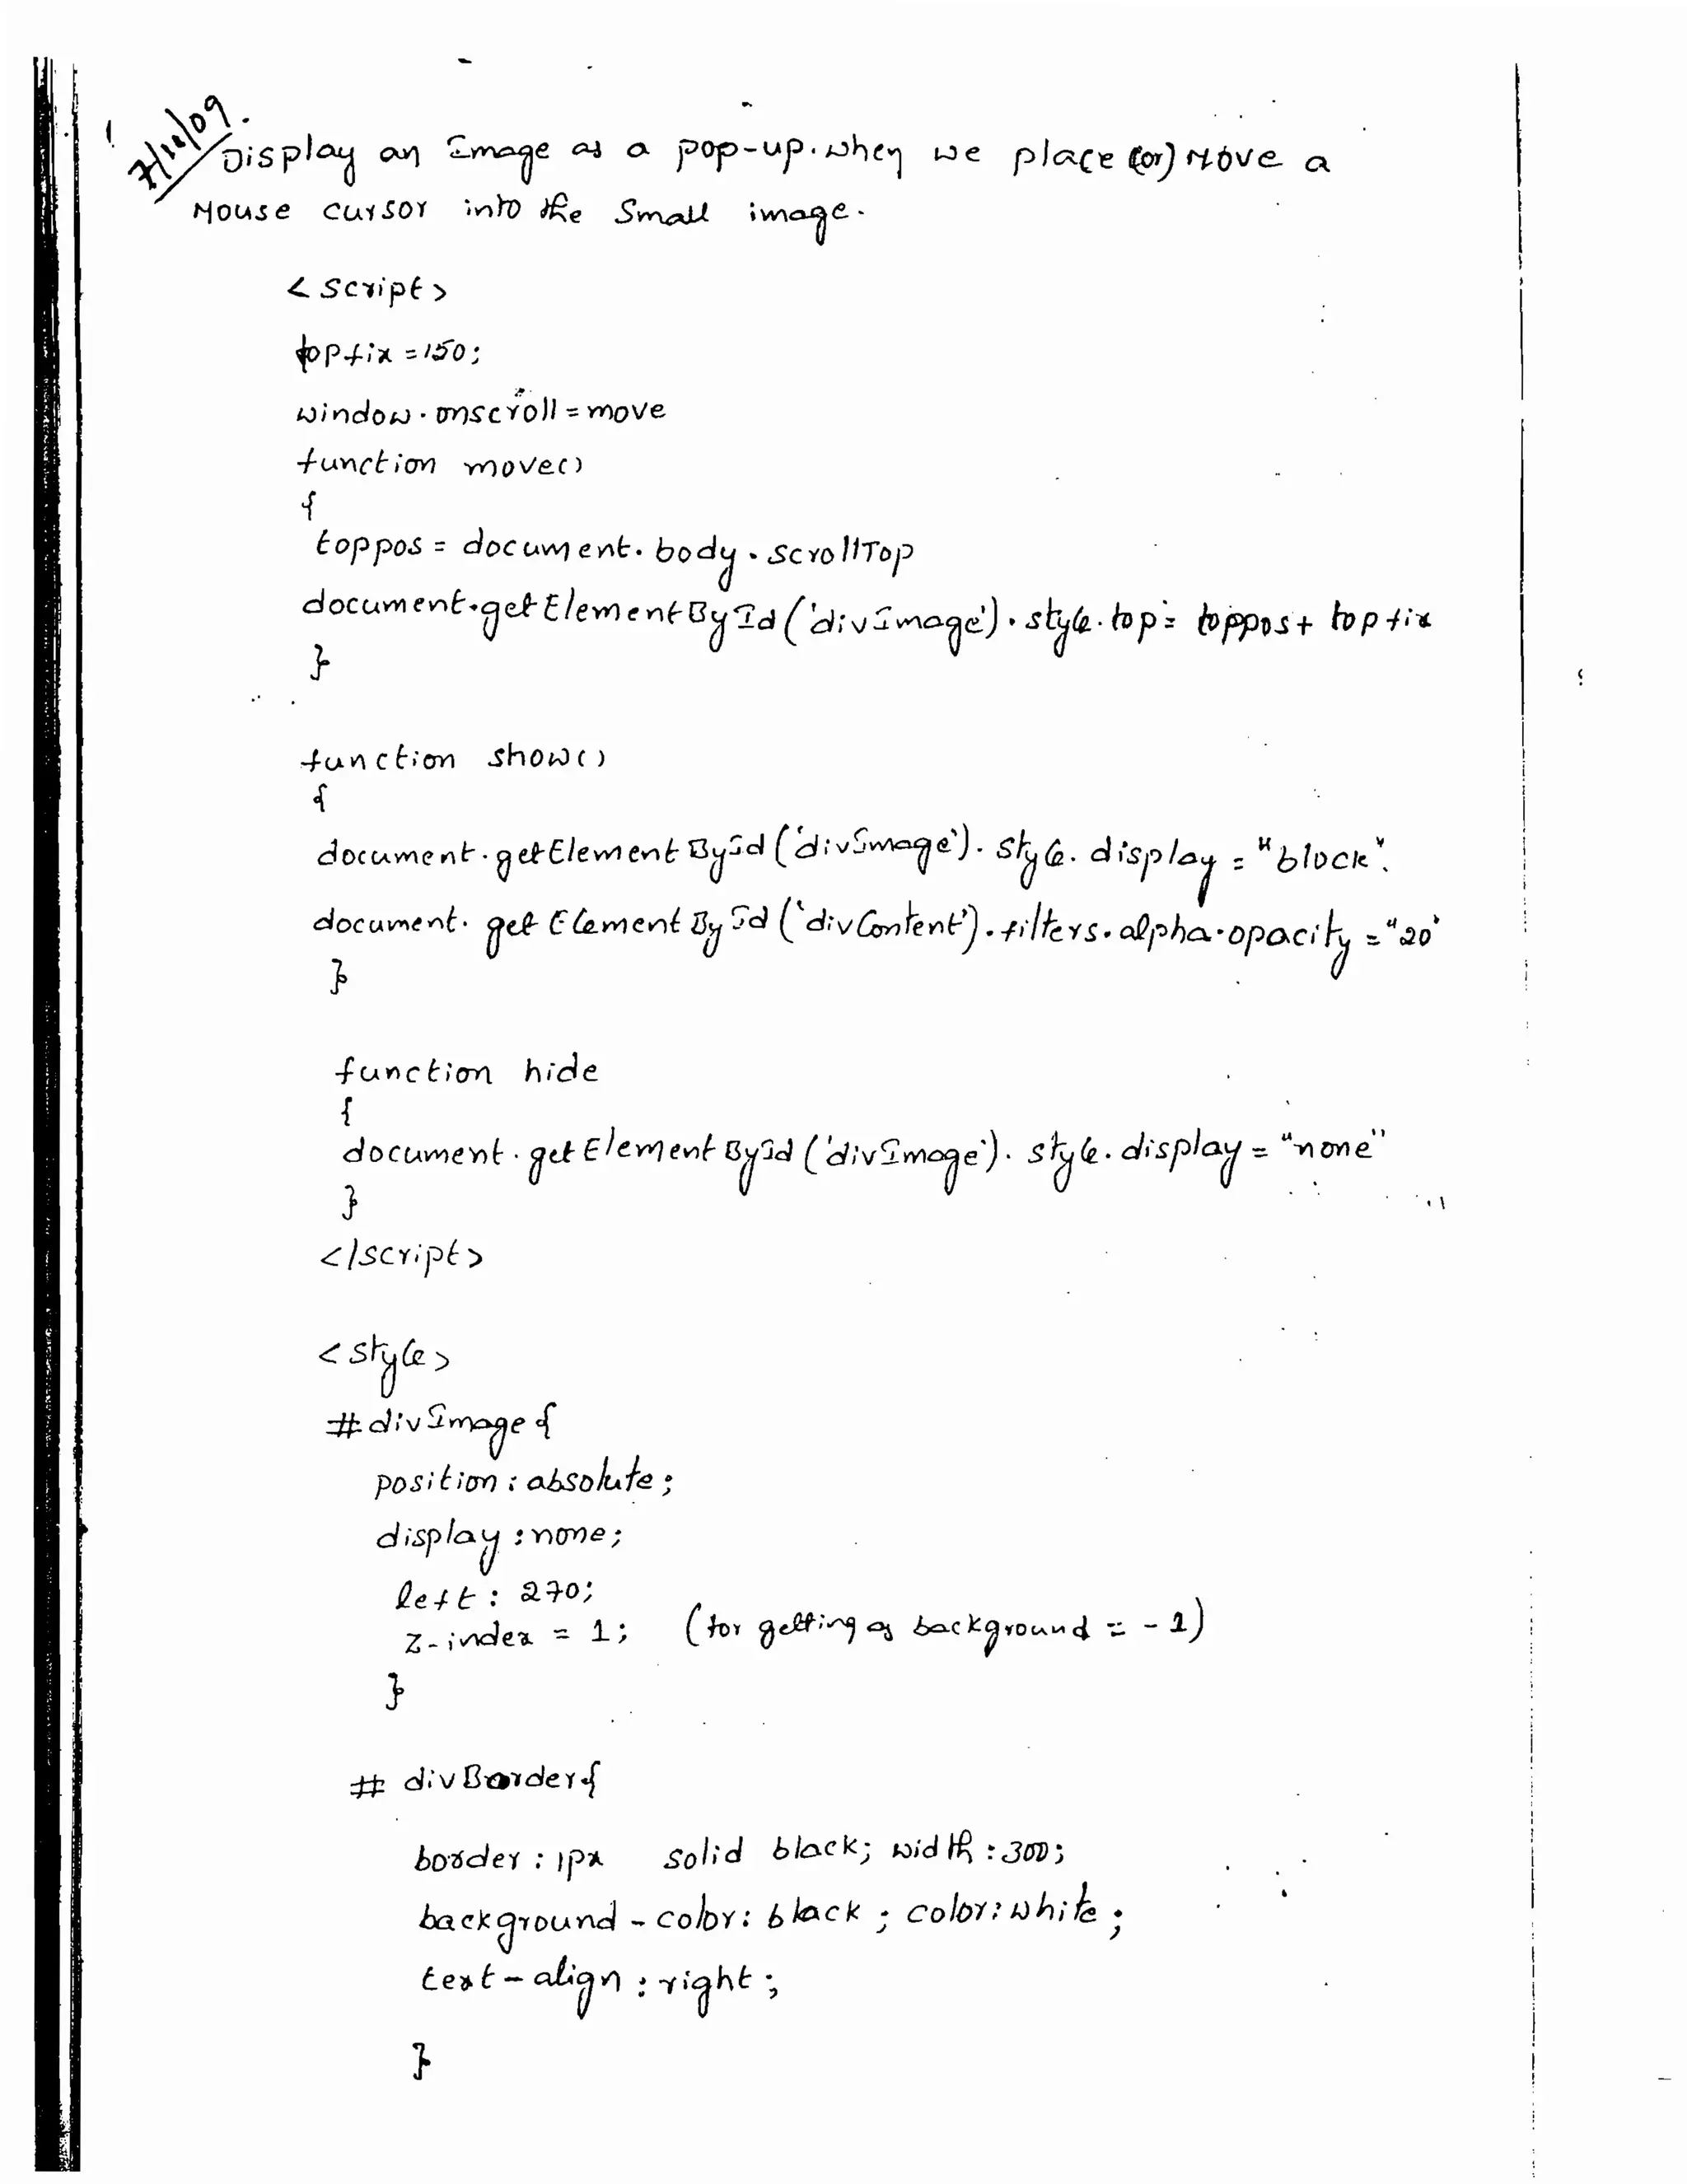 7/11/09.
Display an Image as a pop-up. when we place (or) Move a
Mouse cursor into the Small image.
< script>
topfix =150;
window.onscroll = move
function move()
{
toppos = document. body. scrollTop
document.getElementById('divImage').style.top = toppos + topfix
}
function show()
{
document.getElementById('divImage'). style. display = "block".
document. getElementById('divContent').filters.alpha.opacity = "20'
}
function hide
{
document.getElementById('divImage'). style. display = "none"
}
</script>
<style>
#divImage{
position: absolute;
display :none;
left: 270;
z-index = 1; (for getting as background = -1)
}
# divBorder{
border : 1px solid black; width :300;
background - color: black ; color: white ;
text-align : right ;
}